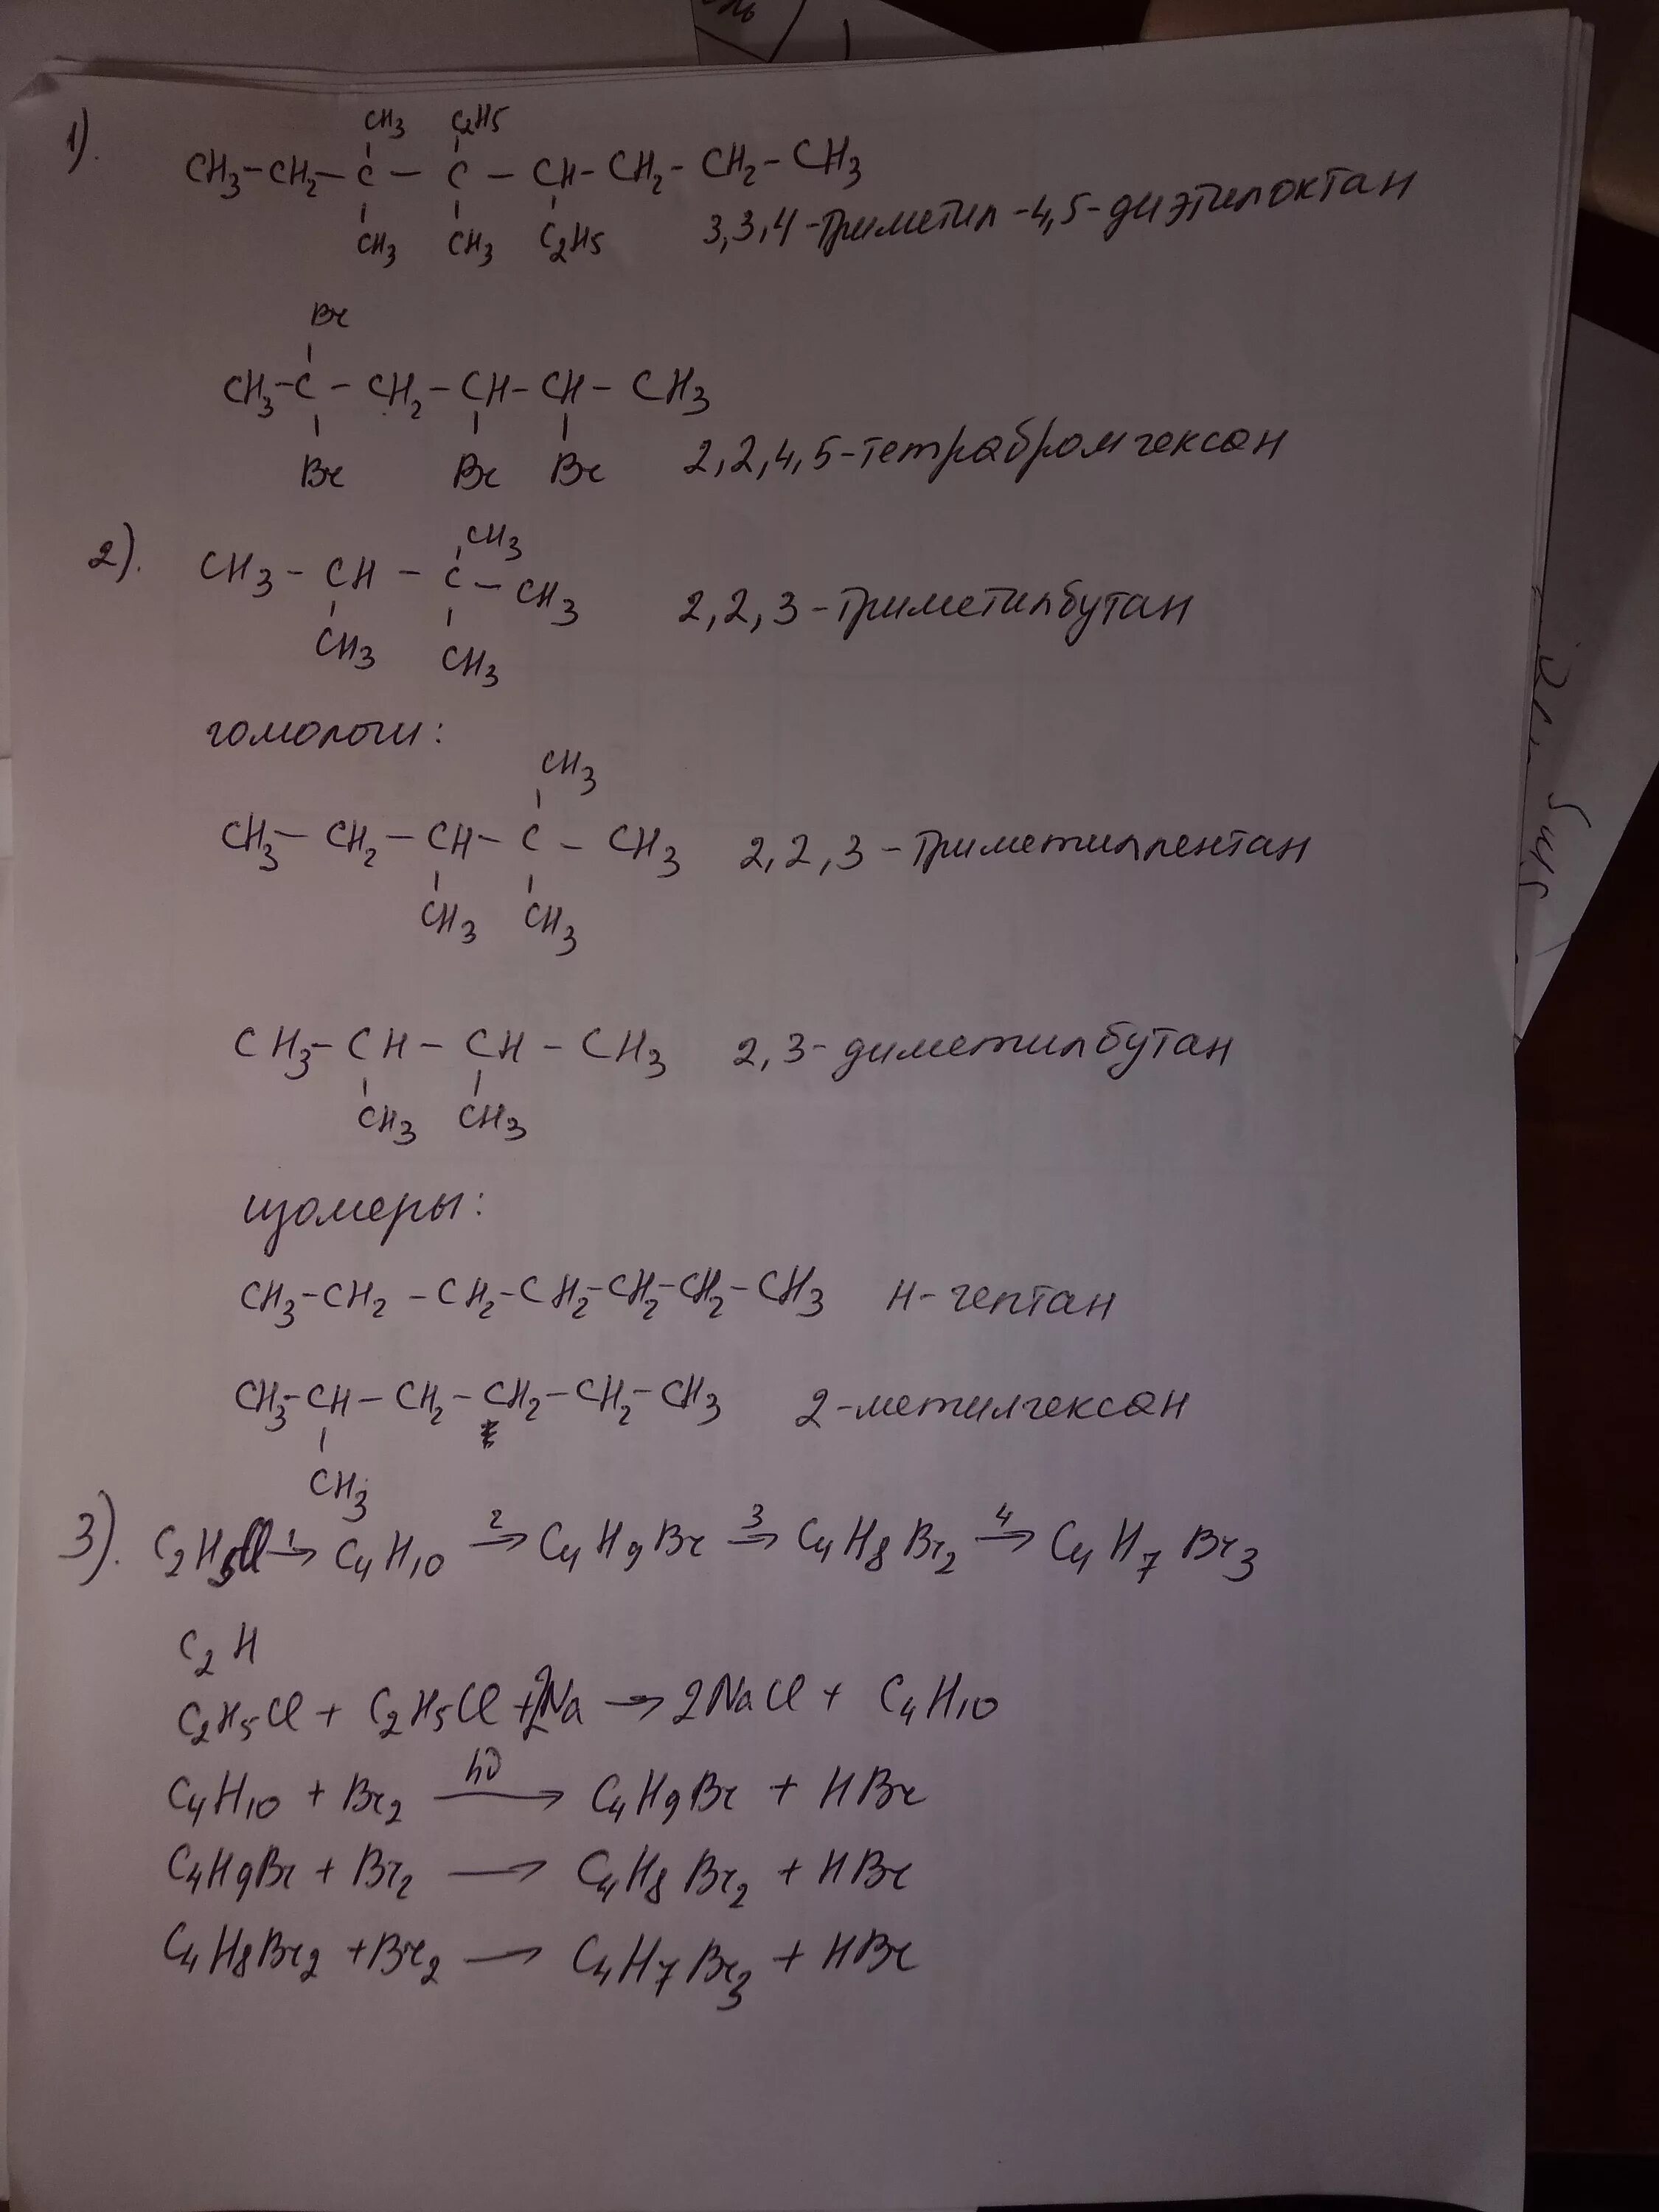 1).
CH3 C2H5
CH3-CH2-C-C-CH-CH2-CH2-CH3
CH3 CH3 C2H5 3,3,4-триметил-4,5-диэтилоктан
Br
CH3-C-CH2-CH-CH-CH3
Br Br Br 2,2,4,5-тетрабромгексан
2).
CH3
CH3-CH-C-CH3 2,2,3-триметилбутан
CH3 CH3
гомологи:
CH3
CH3-CH2-CH-C-CH3 2,2,3-триметилпентан
CH3 CH3
CH3-CH-CH-CH3 2,3-диметилбутан
CH3 CH3
изомеры:
CH3-CH2-CH2-CH2-CH2-CH2-CH3 н-гептан
CH3-CH-CH2-CH2-CH2-CH3 2-метилгексан
CH3
3). C2H5Cl 1→ C4H10 2→ C4H9Br 3→ C4H8Br2 4→ C4H7Br3
C2H
C2H5Cl + C2H5Cl + 2Na → 2NaCl + C4H10
C4H10 + Br2 hν→ C4H9Br + HBr
C4H9Br + Br2 → C4H8Br2 + HBr
C4H8Br2 + Br2 → C4H7Br3 + HBr